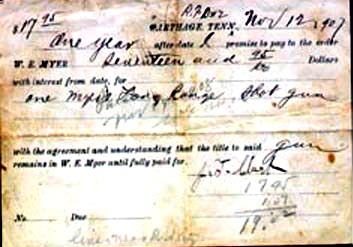 $17 95 CARTHAGE, TENN., Nov 12 1907
One year after date I promise to pay to the order
W. E. MYER Seventeen and 95/100 Dollars
with interest from date, for
one Myers Long Range Shot gun
with the agreement and understanding that the title to said gun
remains in W. E. Myer until fully paid for.
17.95
1.07
19.02
No. Due